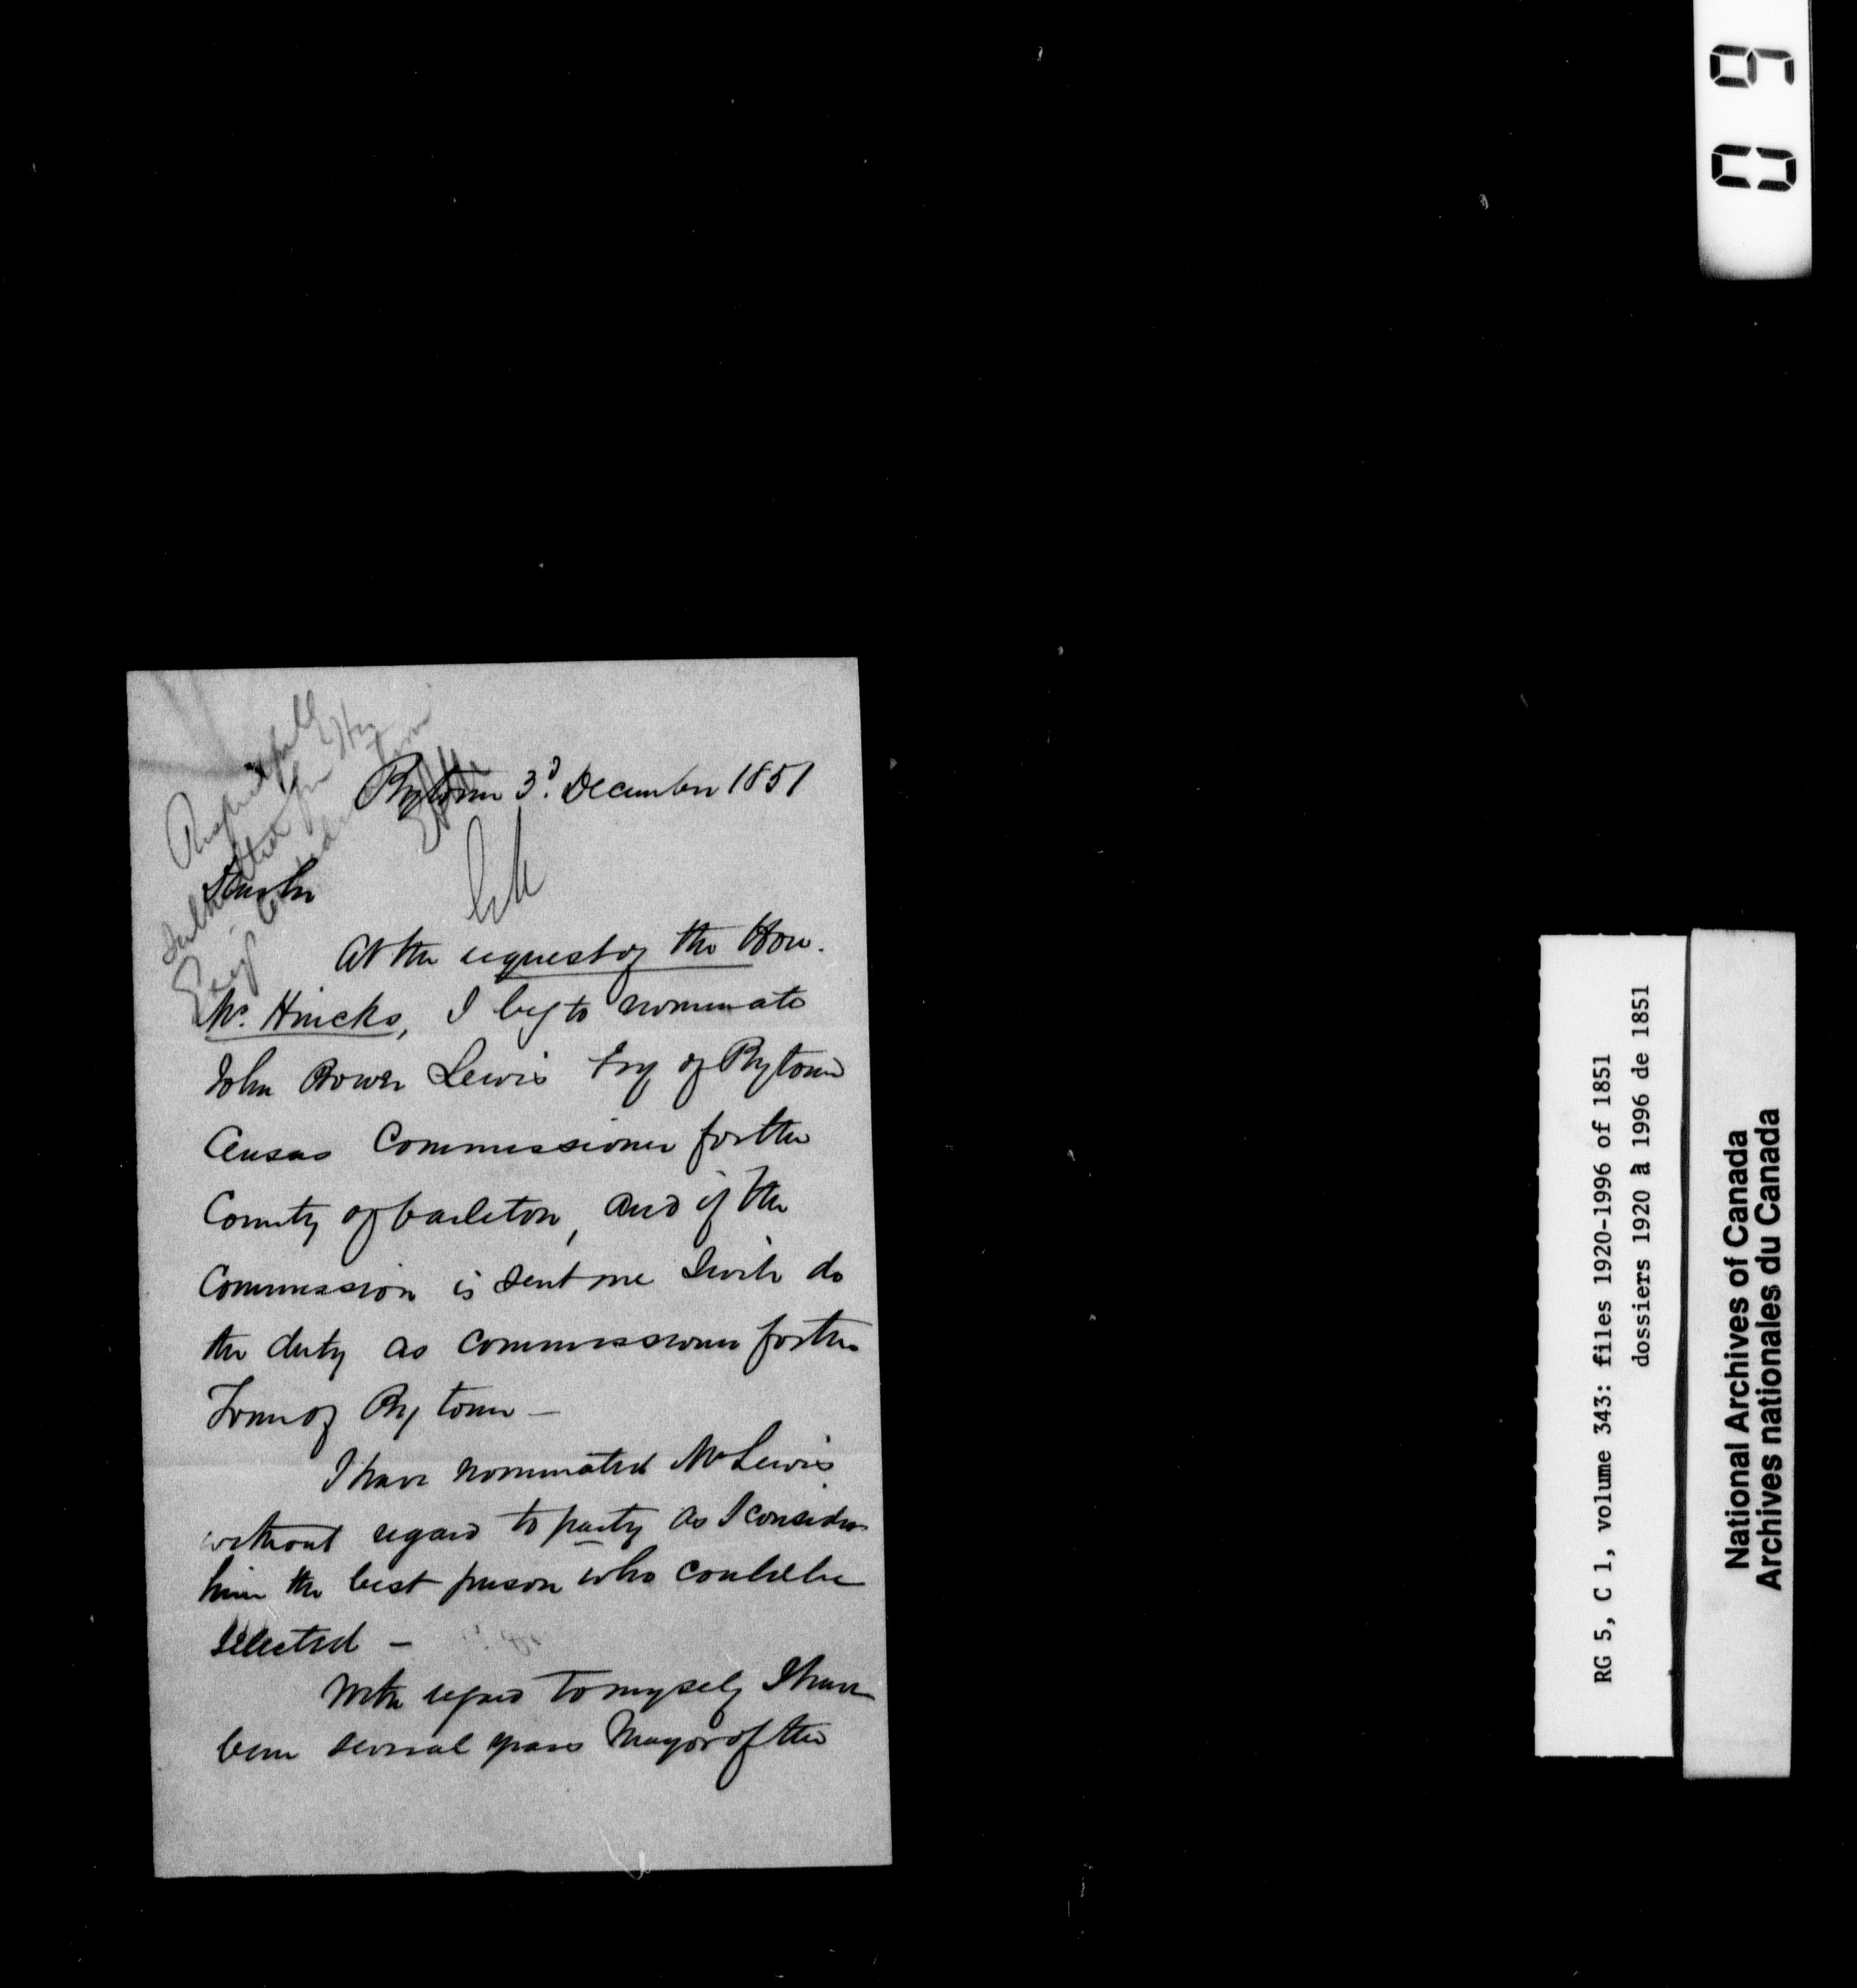 Respectfully
submitted for His
Excy's Consideration
Bytown 3d. December 1851
Dear Sir
At the request of the Hon.
Mr. Hincks, I beg to nominate
John Bower Lewis Esq of Bytown
Census Commissioner for the
County of Carleton, and if the
Commission is sent me I will do
the duty as Commissioner for the
Town of Bytown –
I have nominated Mr Lewis
without regard to party as I consider
him the best person who could be
selected –
With regard to myself I have
been several years Mayor of the
09
RG 5, C 1, volume 343: files 1920-1996 of 1851
dossiers 1920 à 1996 de 1851
National Archives of Canada
Archives nationales du Canada